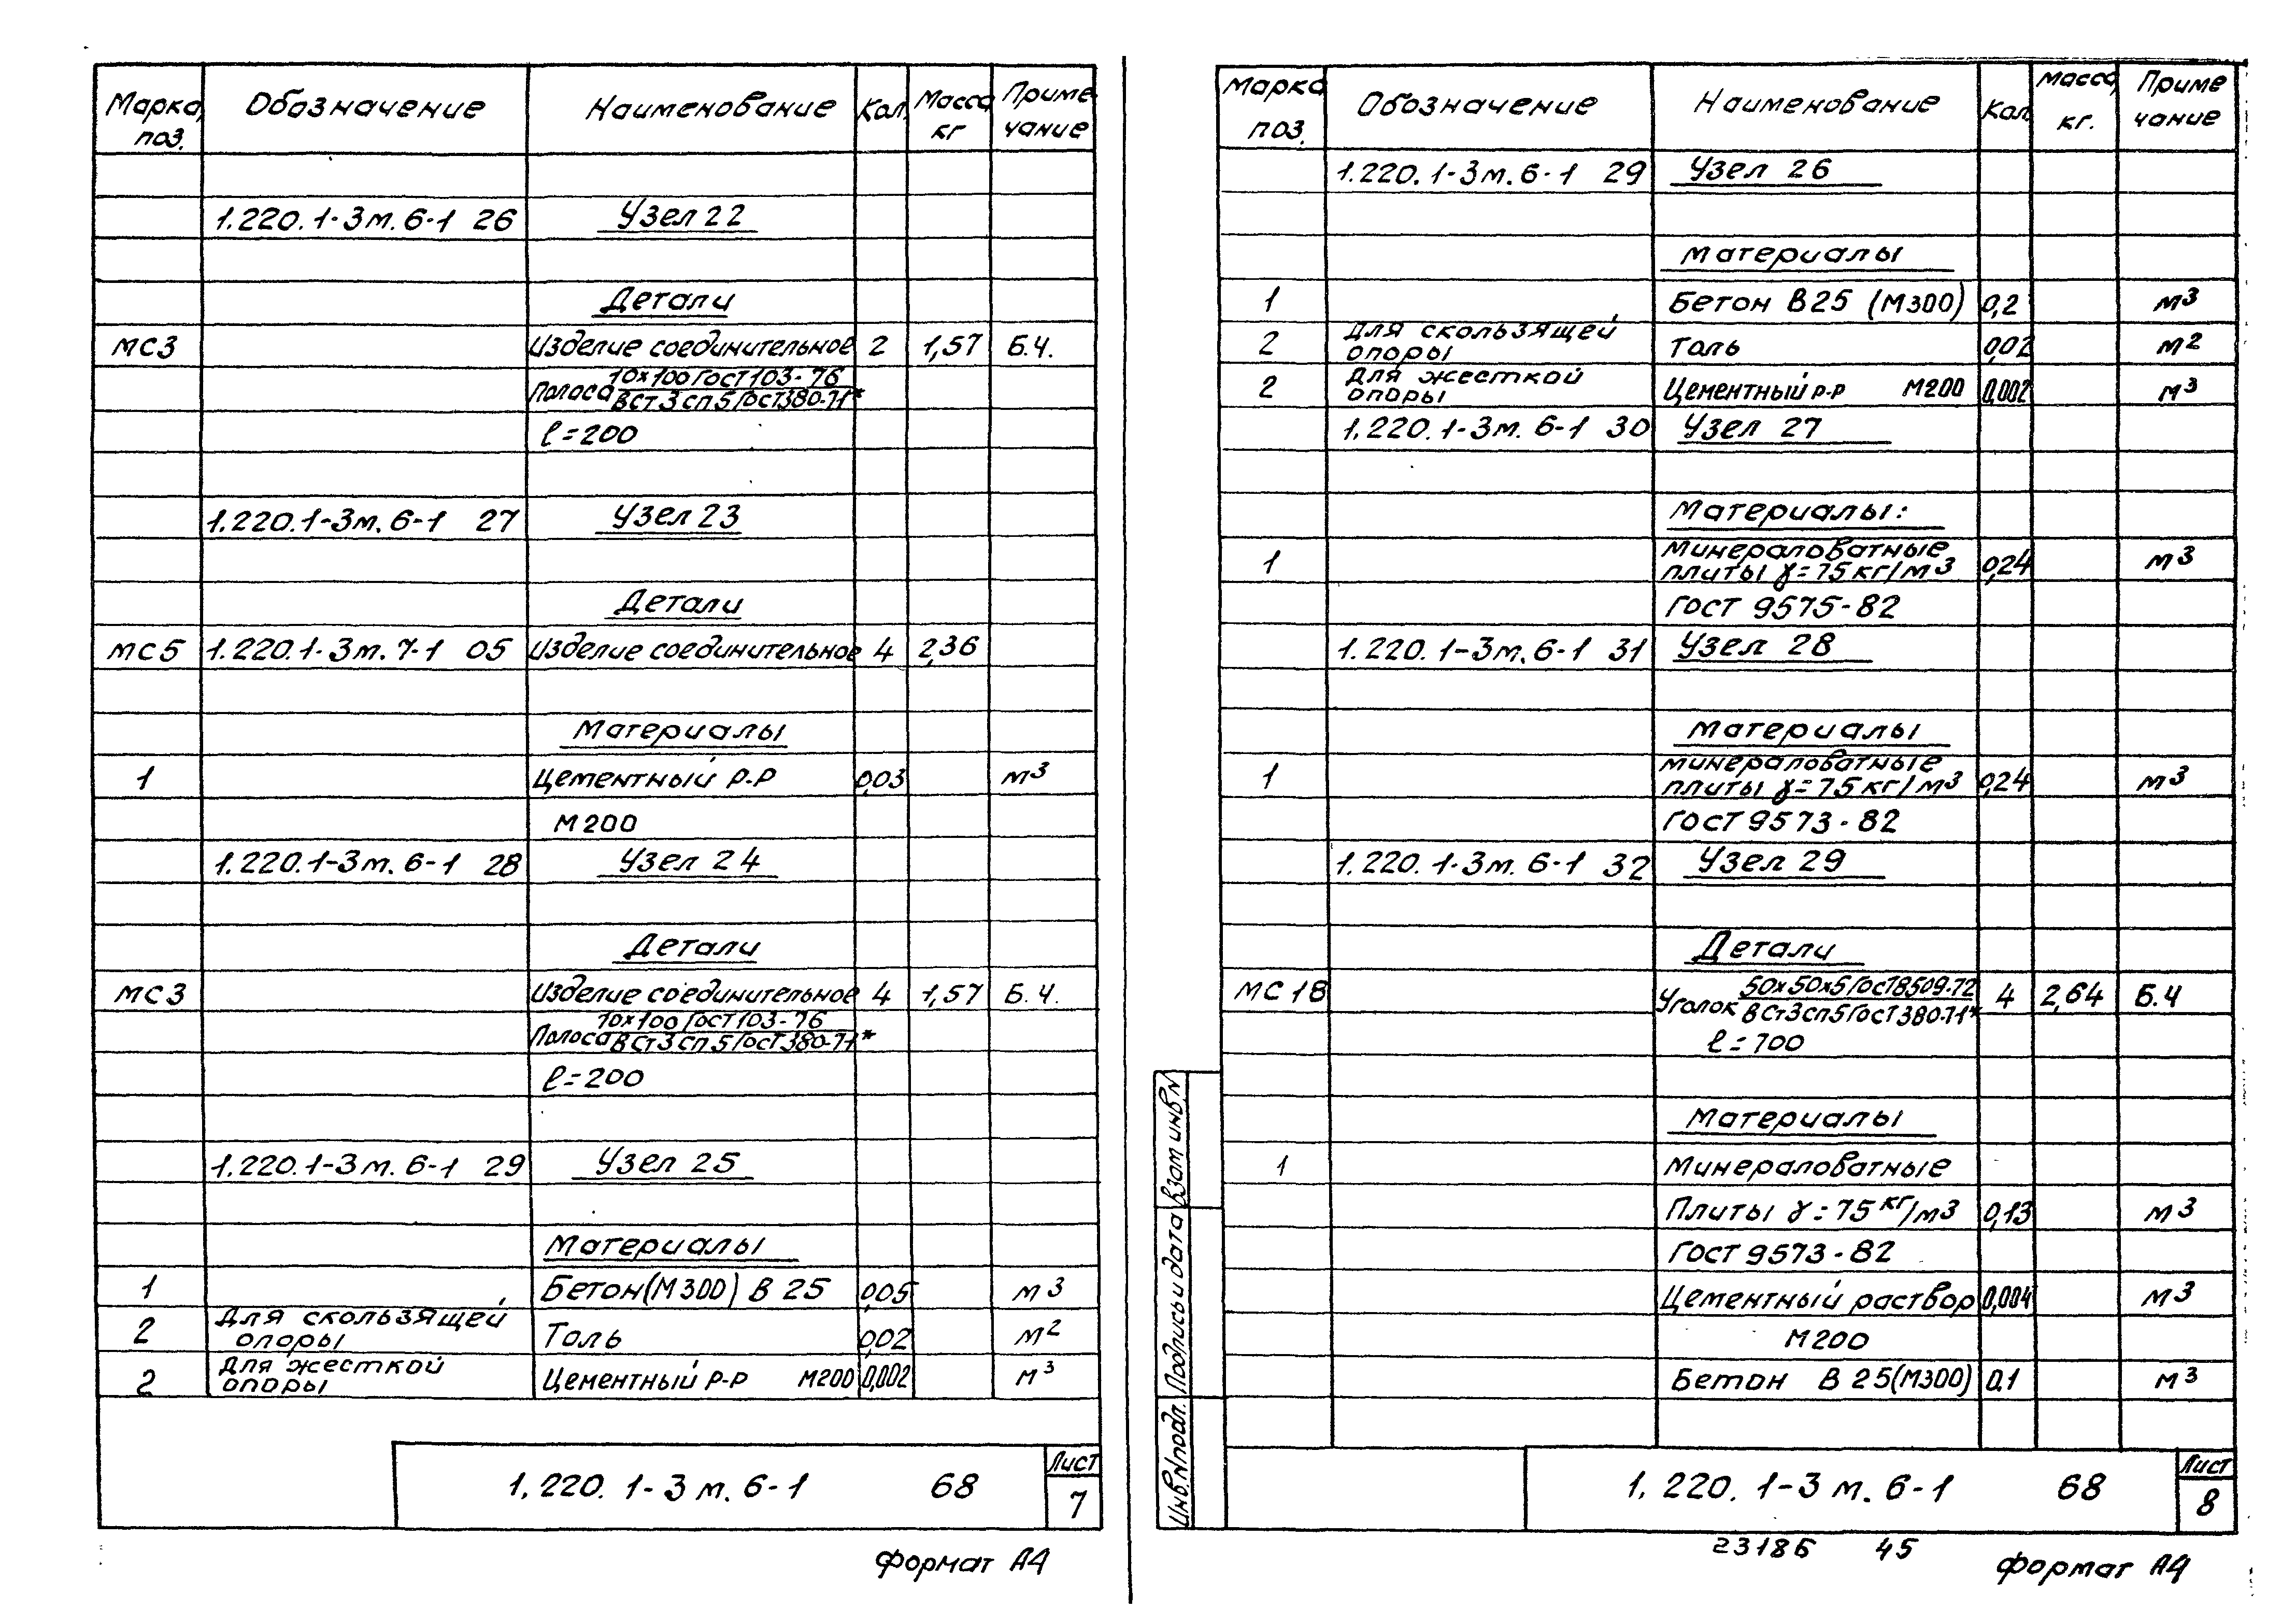 Марка, поз. Обозначение Наименование Кол. Масса, кг Приме чание
1.220.1-3м.6-1 26 Узел 22
Детали
МС3 Изделие соединительное 2 1,57 Б.Ч.
Полоса 10х100 Гост 103-76
ВСт3сп5 Гост380-71*
ℓ=200
1.220.1-3м.6-1 27 Узел 23
Детали
МС5 1.220.1-3м.7-1 05 Изделие соединительное 4 2,36
Материалы
1 Цементный р-р 0,03 м3
М200
1.220.1-3м.6-1 28 Узел 24
Детали
МС3 Изделие соединительное 4 1,57 Б.Ч.
Полоса 10х100 Гост 103-76
ВСт3сп5 Гост380-71*
ℓ=200
1.220.1-3м.6-1 29 Узел 25
Материалы
1 Бетон(М300) В 25 0,05 м3
2 Для скользящей опоры Толь 0,02 м2
2 Для жесткой опоры Цементный р-р М200 0,002 м3
1.220.1-3м.6-1 68 Лист 7
Формат А4
Марка поз. Обозначение Наименование Кол. Масса, кг. Приме чание
1.220.1-3м.6-1 29 Узел 26
Материалы
1 Бетон В25 (М300) 0,2 м3
2 Для скользящей опоры Толь 0,02 м2
2 Для жесткой опоры Цементный р-р М200 0,002 м3
1.220.1-3м.6-1 30 Узел 27
Материалы:
1 Минераловатные плиты γ=75кг/м3 0,24 м3
Гост 9575-82
1.220.1-3м.6-1 31 Узел 28
Материалы
1 Минераловатные плиты γ=75кг/м3 0,24 м3
Гост 9573-82
1.220.1-3м.6-1 32 Узел 29
Детали
МС18 Уголок 50х50х5 Гост8509-72 4 2,64 Б.Ч
ВСт3сп5 Гост380-71*
ℓ=700
Материалы
1 Минераловатные
Плиты γ=75кг/м3 0,13 м3
Гост 9573-82
Цементный раствор 0,004 м3
М200
Бетон В 25(М300) 0,1 м3
Инв.Nподл. Подпись и дата Взам инв.N
1.220.1-3м.6-1 68 Лист 8
23186 45
Формат А4